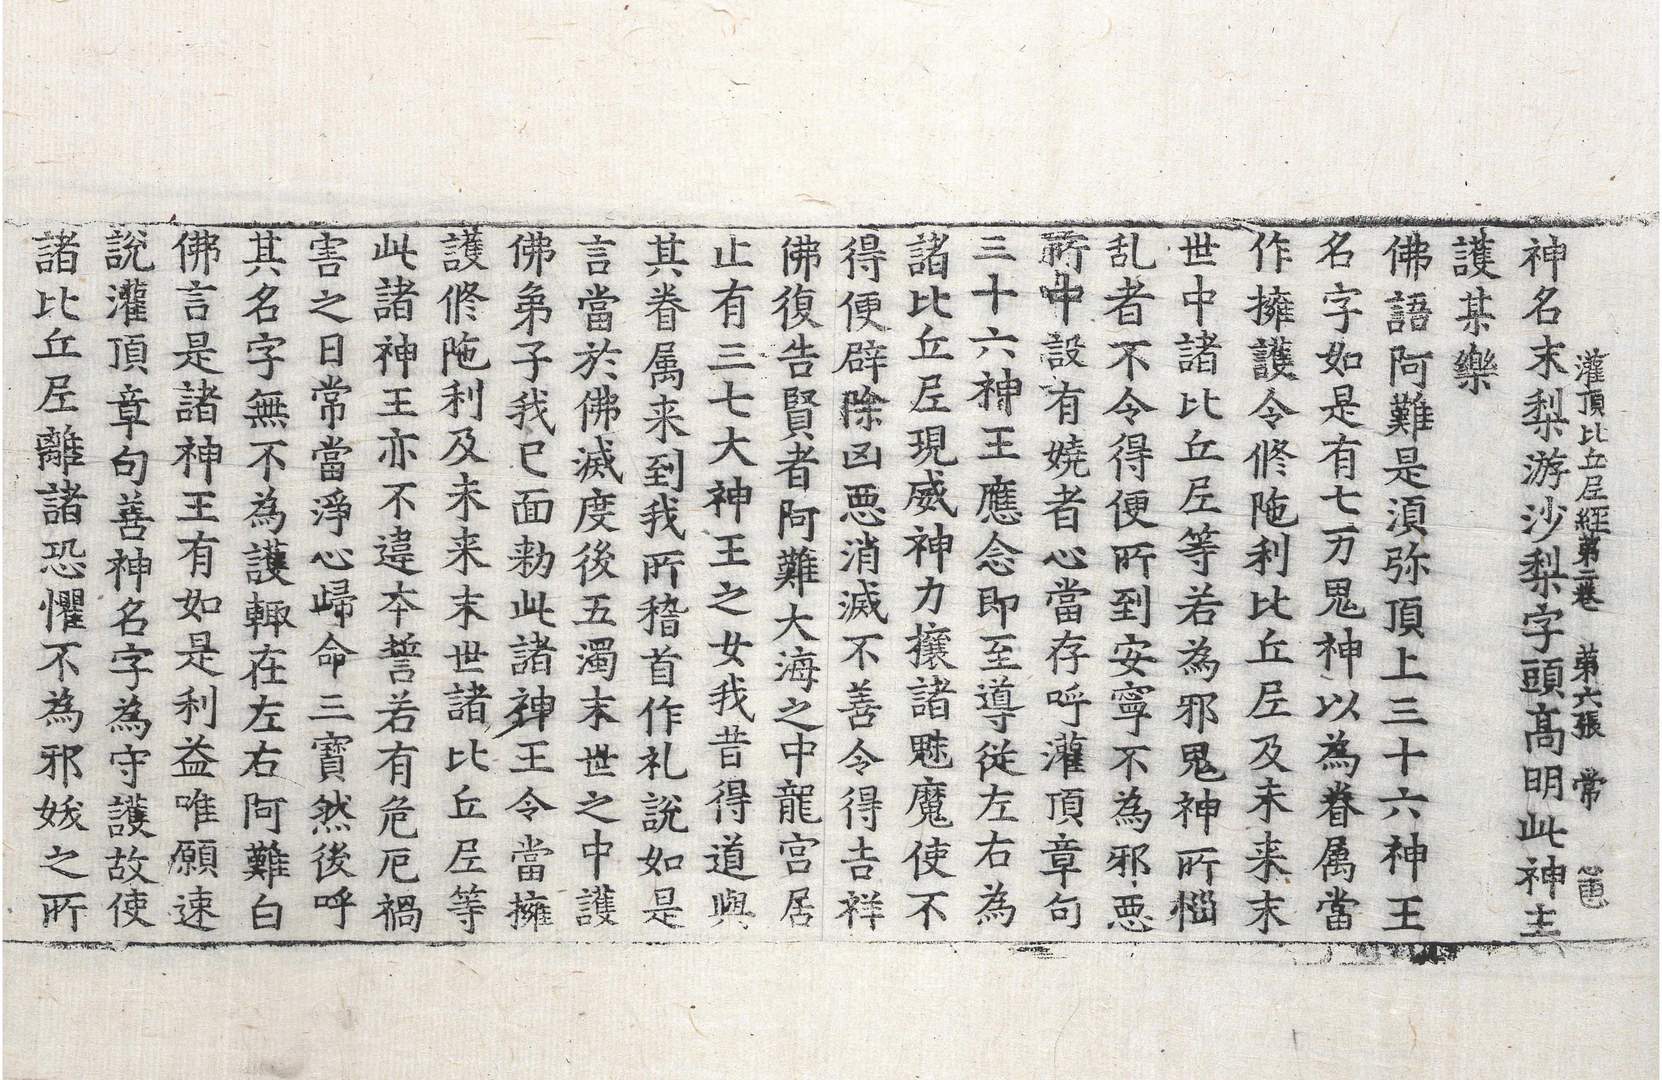 灌頂比丘尼經第二卷　第六張　常
神名末梨游沙梨字頭髙明此神主
護某樂
佛語阿難是湏弥頂上三十六神王
名字如是有七万鬼神以為眷属當
作擁護令修陁利比丘尼及未来末
世中諸比丘尼等若為邪鬼神所惱
乱者不令得便所到安寧不為邪惡
所中設有嬈者心當存呼灌頂章句
三十六神王應念即至導從左右為
諸比丘尼現威神力攘諸魅魔使不
得便辟除凶惡消滅不善令得吉祥
佛復告賢者阿難大海之中龍宮居
止有三七大神王之女我昔得道與
其眷属来到我所稽首作礼說如是
言當於佛滅度後五濁末世之中護
佛弟子我已面勑此諸神王令當擁
護修陁利及未来末世諸比丘尼等
此諸神王亦不違本誓若有危厄禍
害之日常當淨心歸命三寶然後呼
其名字無不為護輙在左右阿難白
佛言是諸神王有如是利益唯願速
說灌頂章句善神名字為守護故使
諸比丘尼離諸恐懼不為邪妭之所